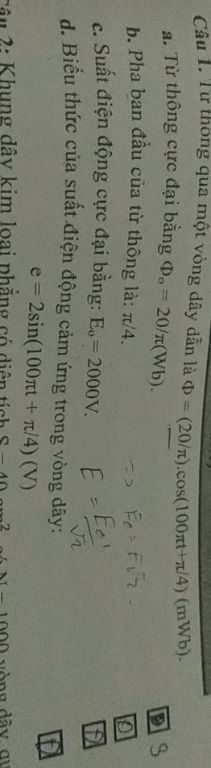 Câu 1. Từ thông qua một vòng dây dẫn là Φ = (20/π).cos(100πt+π/4) (mWb).
a. Từ thông cực đại bằng Φₒ = 20/π(Wb).
b. Pha ban đầu của từ thông là: π/4.
=> E₀ = E√2.
c. Suất điện động cực đại bằng: E₀ = 2000V.
E = E₀/√2
d. Biểu thức của suất điện động cảm ứng trong vòng dây:
e = 2sin(100πt + π/4) (V)
Câu 2: Khung dây kim loại phẳng có diện tích S = 40 cm² có N = 1000 vòng dây